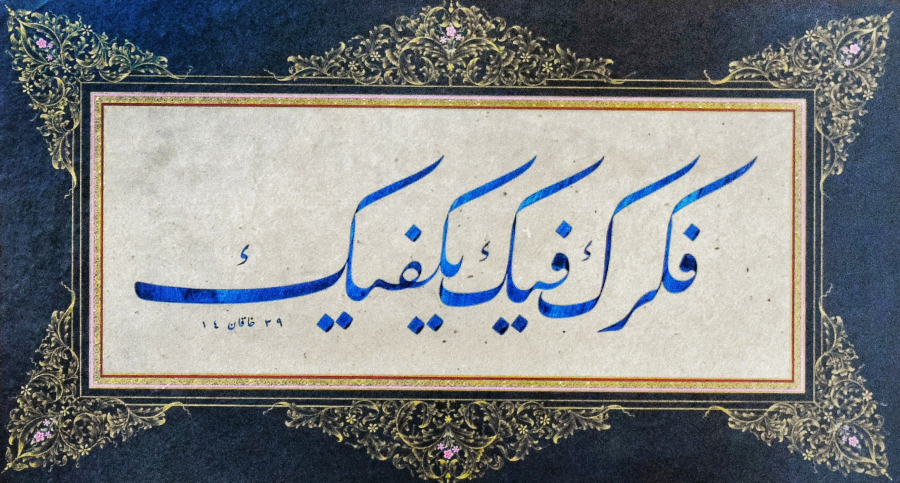 فكرك فيك يكفيك
١٤ خاقان ٣٩